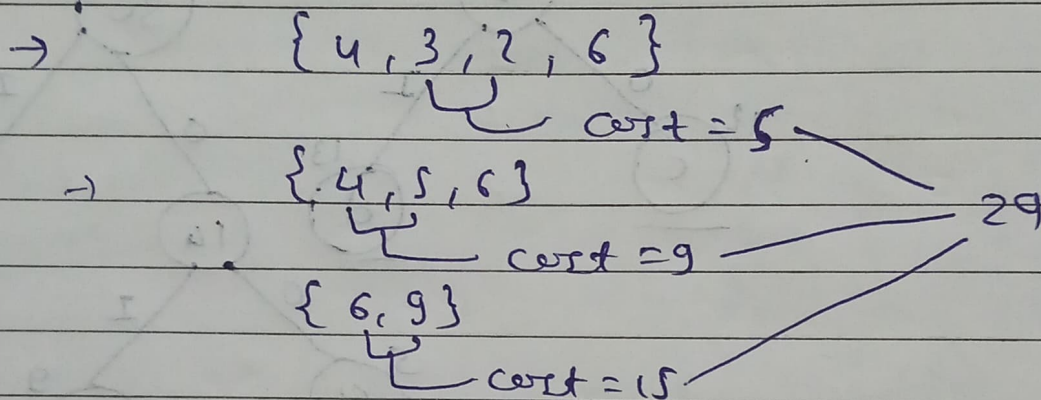 → { 4, 3, 2, 6 }
cost = 5
→ { 4, 5, 6 }
29
cost = 9
{ 6, 9 }
cost = 15